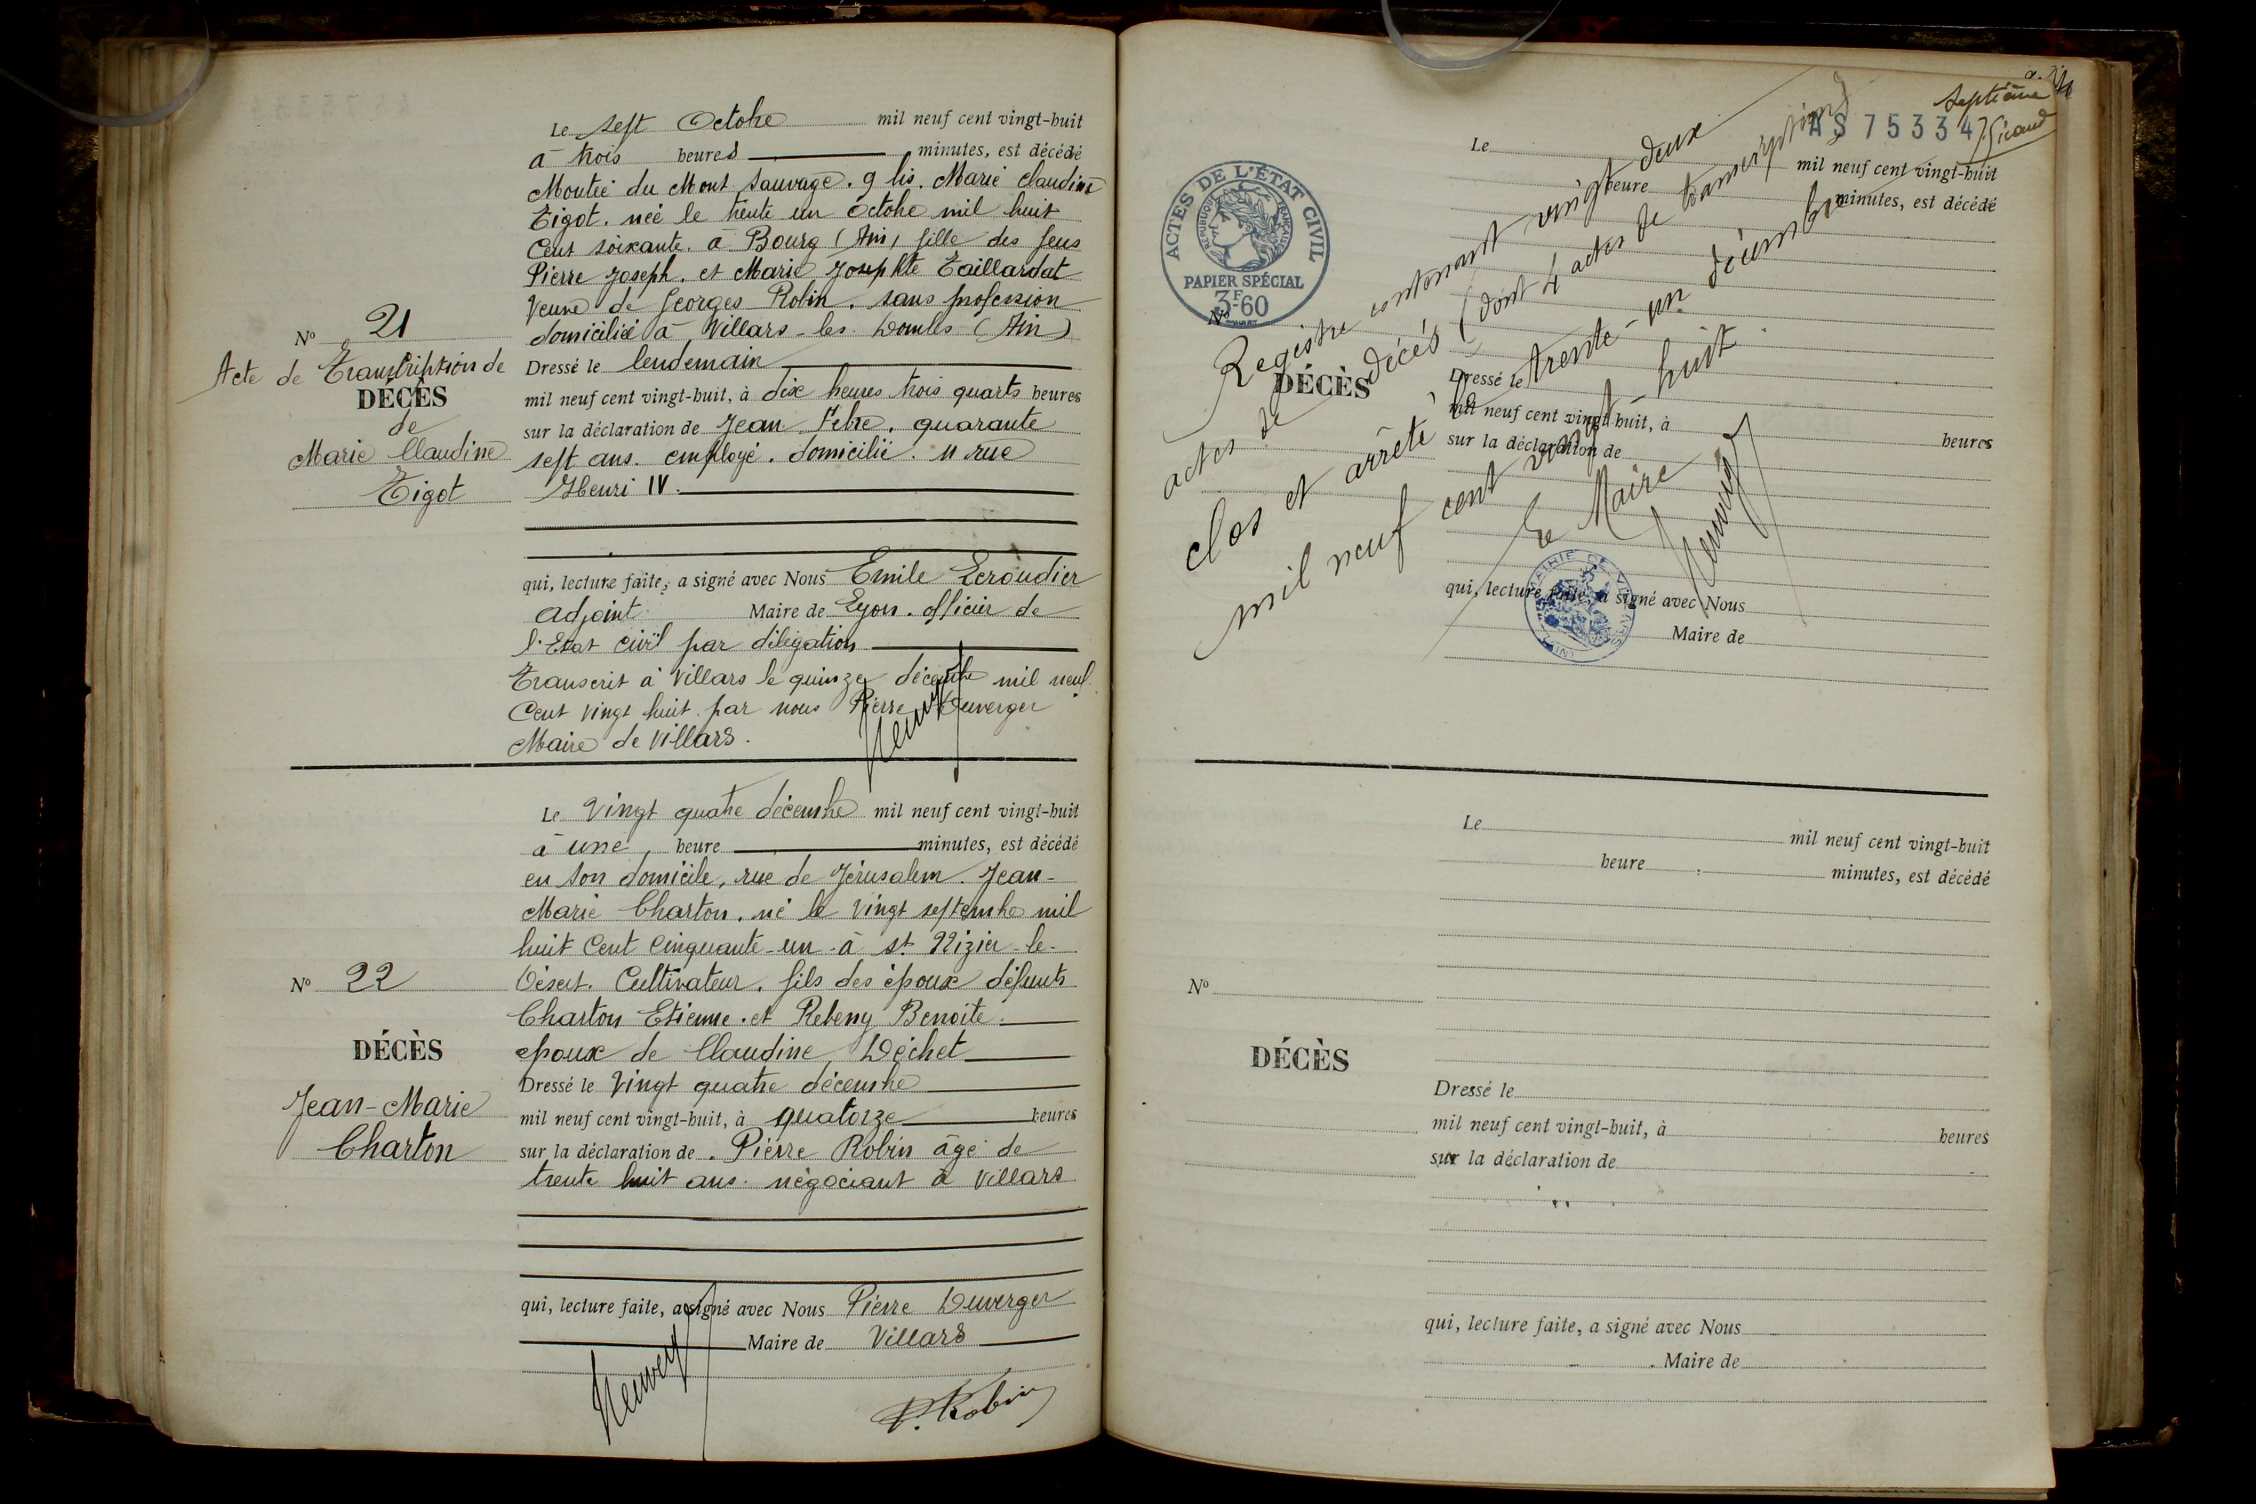 Le sept Octobre mil neuf cent vingt-huit
à trois heures minutes, est décédé
Montée du Mont Sauvage. 9 bis. Marie Claudine
Tigot. née le trente un octobre mil huit
Cent soixante. à Bourg (Ain) fille des feus
Pierre Joseph. et Marie Josephte Taillardat
Veuve de Georges Robin. sans profession
domiciliée à Villars-les-Dombes (Ain)
Nº 21
Acte de Transcription de
DÉCÈS
de
Marie Claudine
Tigot
Dressé le lendemain
mil neuf cent vingt-huit, à dix heures trois quarts heures
sur la déclaration de Jean Febre. quarante
sept ans. employé. domicilié. 11 rue
Henri IV.
qui, lecture faite, a signé avec Nous Emile Leroudier
Adjoint Maire de Lyon. officier de
l'Etat civil par délégation
Transcrit à Villars le quinze décembre mil neuf
Cent vingt huit par nous Pierre Duverger
Maire de Villars.
Le Vingt quatre décembre mil neuf cent vingt-huit
à une heure minutes, est décédé
en son domicile, rue de Jérusalem. Jean-
Marie Charton. né le vingt septembre mil
huit Cent Cinquante-un à St Nizier-le-
Désert. Cultivateur. fils des époux défunts
Charton Etienne. et Rebeny Benoite.
époux de Claudine Déchet
Nº 22
DÉCÈS
Jean-Marie
Charton
Dressé le Vingt quatre décembre
mil neuf cent vingt-huit, à quatorze heures
sur la déclaration de Pierre Robin âgé de
trente huit ans. négociant à Villars
qui, lecture faite, a signé avec Nous Pierre Duverger
Maire de Villars
P. Robin
septième
AS 75334
Le mil neuf cent vingt-huit
heure minutes, est décédé
ACTES DE L'ÉTAT CIVIL
RÉPUBLIQUE FRANÇAISE
PAPIER SPÉCIAL
3F-60
Nº
DÉCÈS
Registre contenant vingt deux
actes de décès (dont 4 actes de transcription)
clos et arrêté le trente-un décembre
mil neuf cent vingt huit.
Le Maire
Dressé le
mil neuf cent vingt-huit, à heures
sur la déclaration de
qui, lecture faite, a signé avec Nous
Maire de
MAIRIE DE VILLARS
(AIN)
Le mil neuf cent vingt-huit
heure minutes, est décédé
Nº
DÉCÈS
Dressé le
mil neuf cent vingt-huit, à heures
sur la déclaration de
qui, lecture faite, a signé avec Nous
Maire de